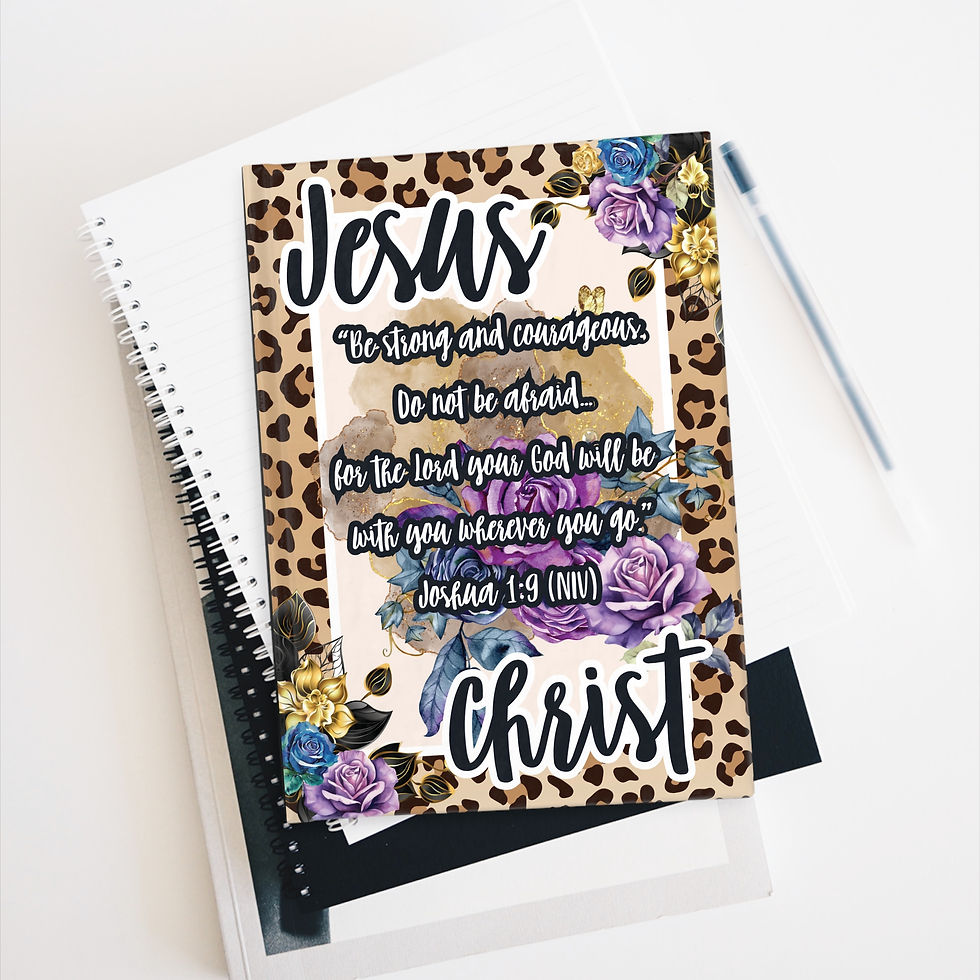 Jesus
“Be strong and courageous.
Do not be afraid...
for the Lord your God will be
with you wherever you go.”
Joshua 1:9 (NIV)
Christ